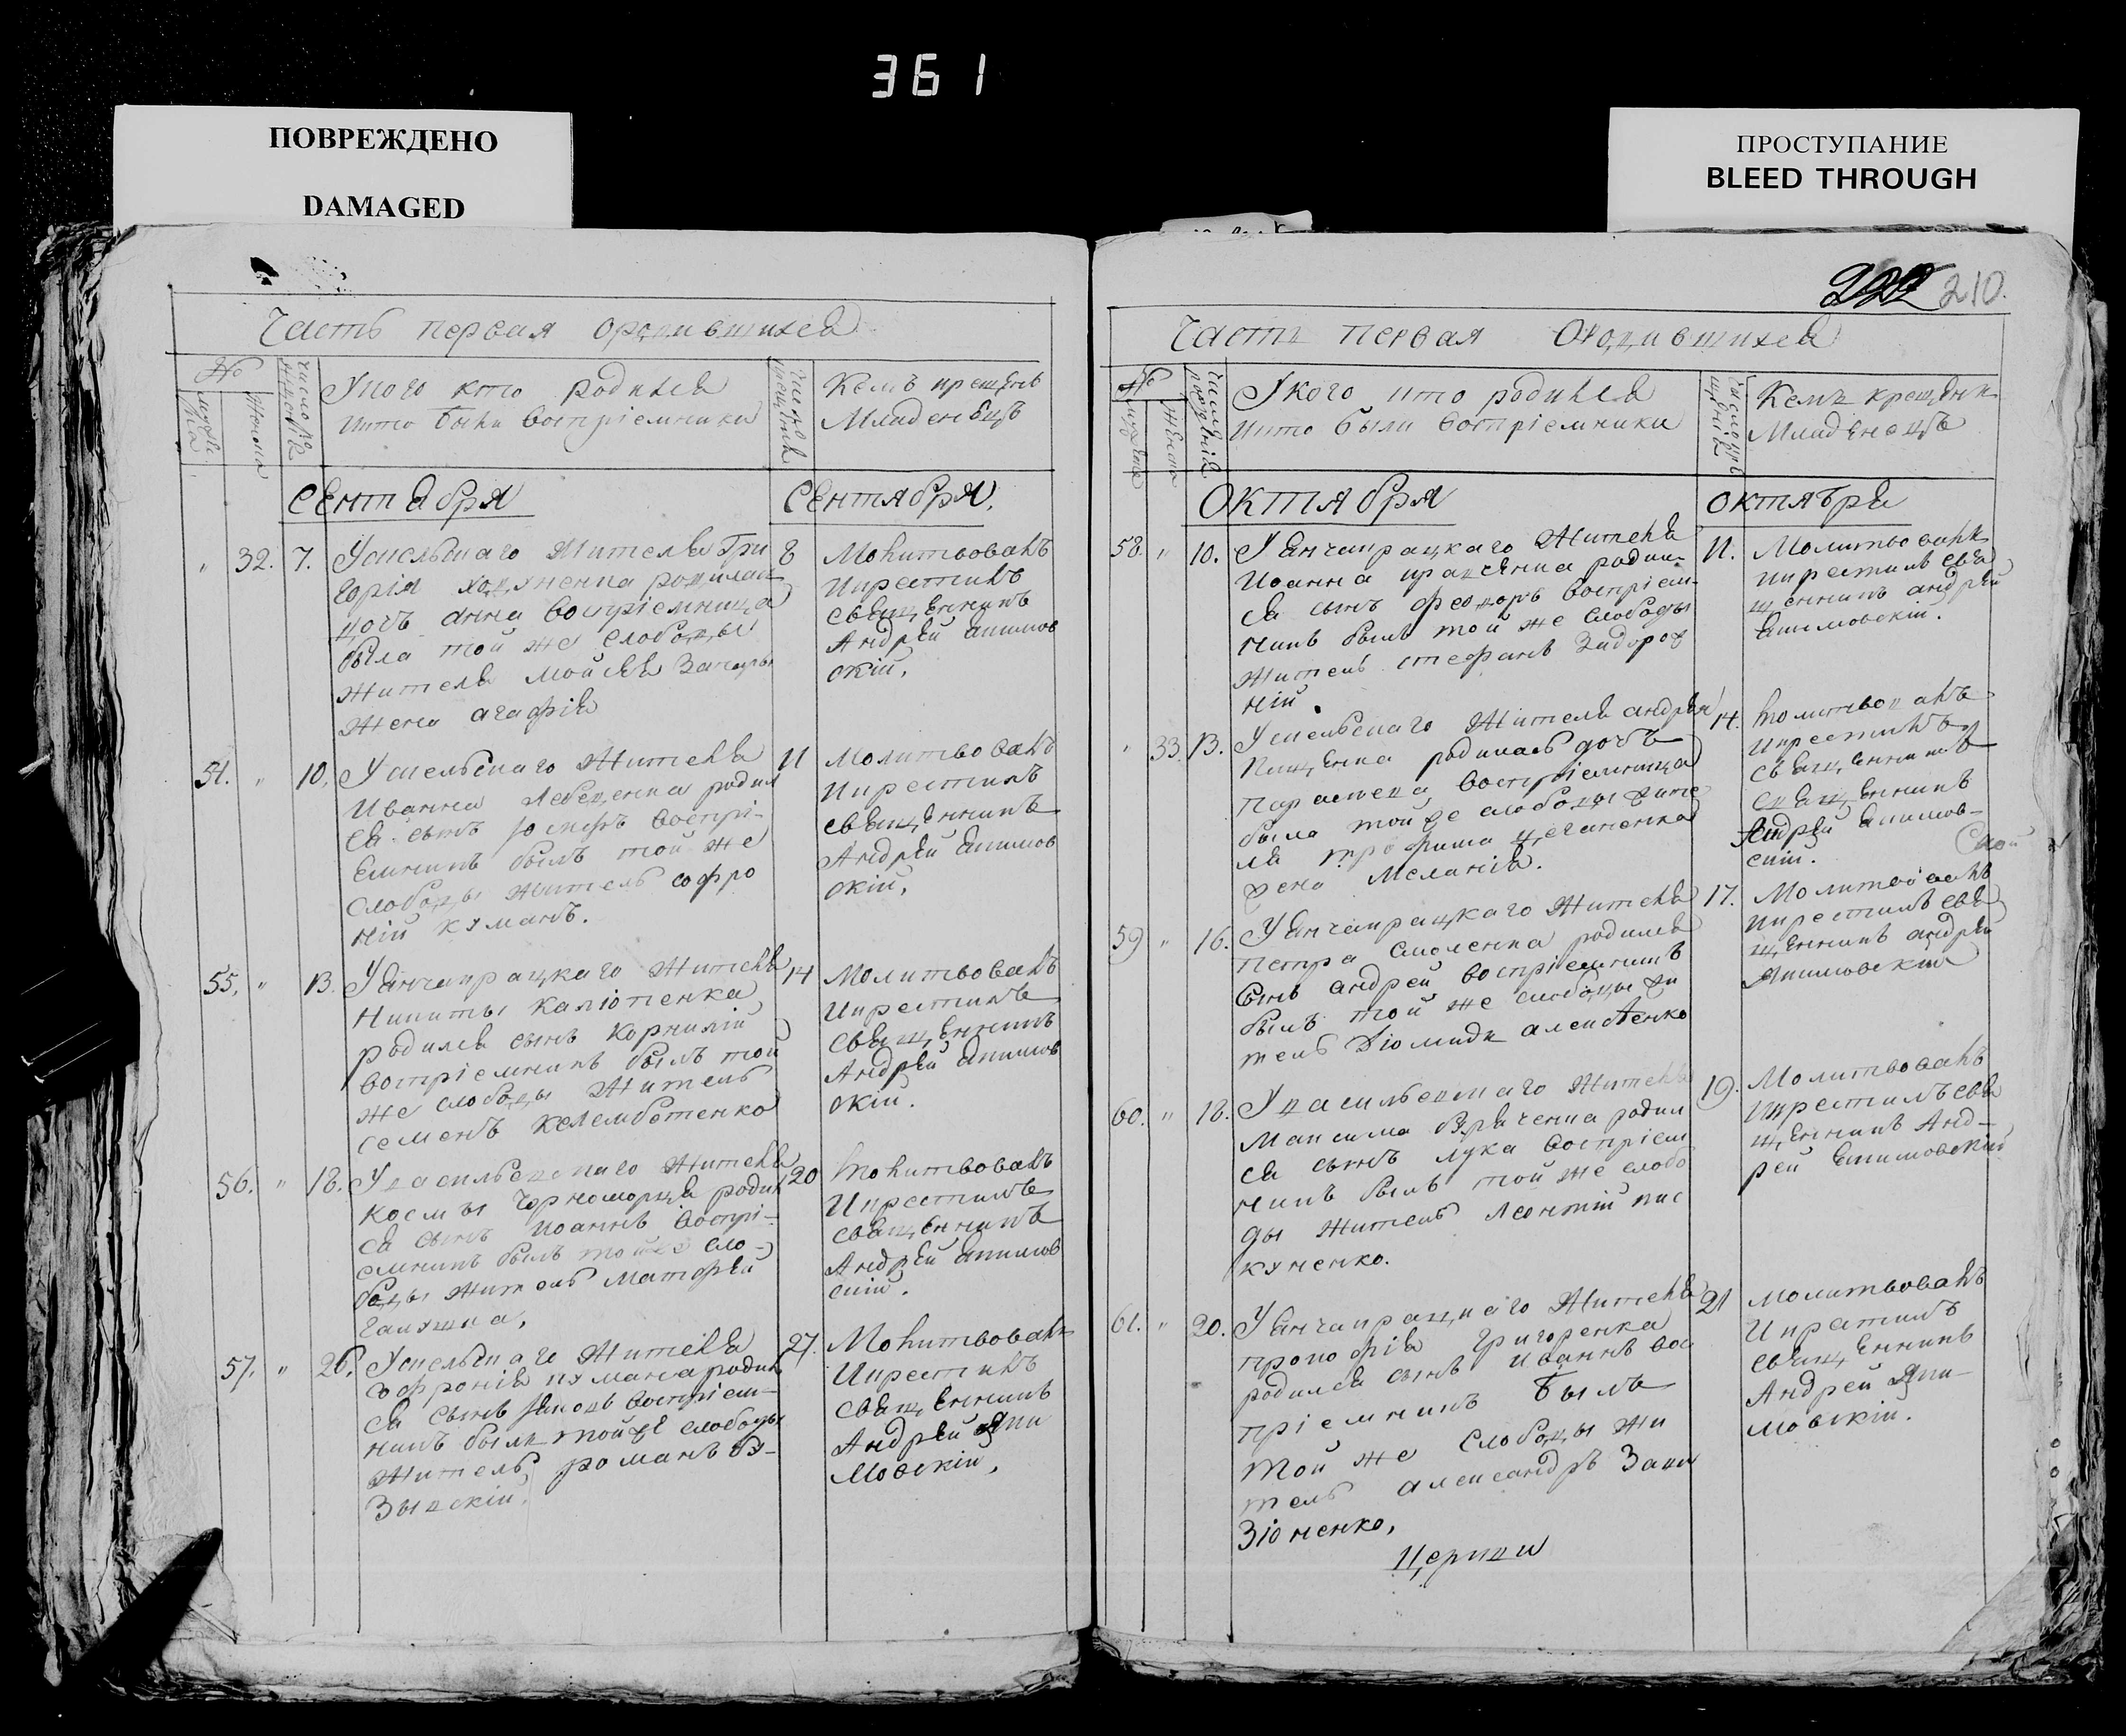 361
ПОВРЕЖДЕНО
DAMAGED
ПРОСТУПАНИЕ
BLEED THROUGH
Часть первая ородившихся
№
Укого кто родился
икто были Воспріемники
Кемъ крещенъ
Младенецъ
Сентября
Сентября.
" 32. 7.
Григорія
дочъ анна Воспріемница
была той же слободы
жителя Мойсея
жена агафія
8
Молитвовалъ
икрестилъ
священникъ
Андрей Якимов
скій.
54. " 10.
жителя
Иванна Лебеденка родил
ся сынъ воспрі-
емникъ былъ той же
слободы житель софро
ній куманъ.
11
Молитвовалъ
икрестилъ
священникъ
Андрей Якимов
скій.
55. " 13.
Уянчакрацкаго жителя
Никиты
родился сынъ Корнилій
воспріемникъ былъ той
же слободы житель
семенъ келембетенко
14
Молитвовалъ
икрестилъ
священникъ
Андрей Якимов
скій.
56. " 18.
Увасильевскаго жителя
космы Чорноморця родил
ся сынъ иоаннъ воспрі-
емникъ былъ тойже сло-
боды житель Матфей
галушка.
20
Молитвовалъ
икрестилъ
священникъ
Андрей Якимов
скій.
57. " 26.
жителя
софронія кумана родил
ся сынъ воспріем-
никъ былъ тойже слободы
житель романъ
27.
Молитвовалъ
икрестилъ
священникъ
Андрей Яки
мовскій.
222 210.
Часть первая Ородившихся
№
Укого кто родился
икто были воспріемники
Кемъ крещенъ
Младенецъ
Октября
октября
58. " 10.
Уянчакрацкаго жителя
Иоанна родил-
ся сынъ феодоръ воспріем-
никъ былъ той же слободы
житель стефанъ Задорож
ній.
11.
Молитвовалъ
икрестилъ свя
щенникъ андрей
Якимовскій.
" 33. 13.
жителя андрея
родилась дочъ
параскева воспріемница
была тойже слободы жите
ля трофима цеганенка
жена Меланія.
14.
молитвовалъ
икрестилъ
священникъ
священникъ
Андрей Якимов-
скій.
59 " 16.
Уянчакрацкаго жителя
петра родился
сынъ андрей воспріемникъ
былъ той же слободы жи
тель Діомидъ алексѣенко
17.
Молитвовалъ
икрестилъ свя
щенникъ андрей
Якимовскій
60. " 18.
Увасильевскаго жителя
Максима родил
ся сынъ лука воспріем
никъ былъ той же слобо
ды житель Леонтій пис
куненко.
19.
Молитвовалъ
икрестилъ свя
щенникъ Анд-
рей Якимовскій
61. " 20.
Уянчакрацкаго жителя
прокофія Григоренка
родился сынъ Иваннъ вос
пріемникъ былъ
той же слободы жи
тель александръ
21
молитвовалъ
священникъ
Андрей Яки-
мовскій.
Церкви